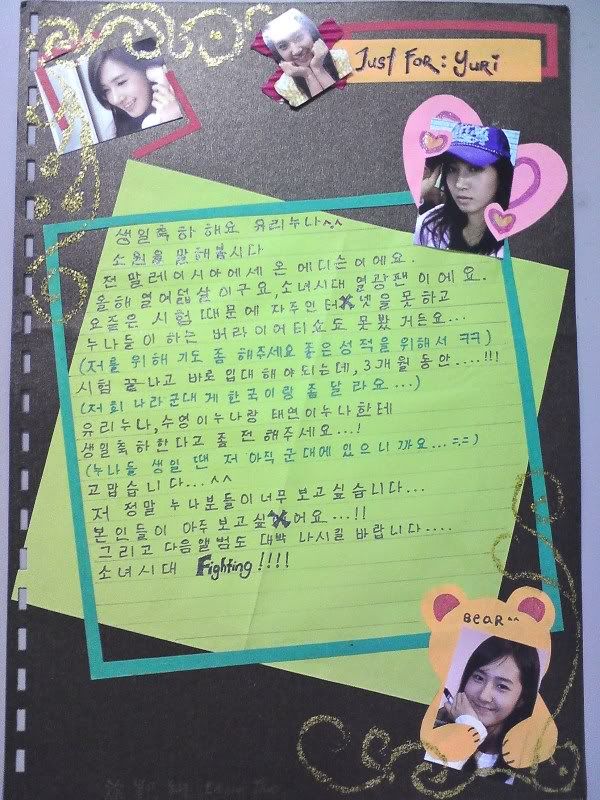 Just For: Yuri
생일축하해요 유리누나^^
소원을 말해봅시다
전 말레이시아에세 온 에디슨이에요.
올해 열여덟살이구요, 소녀시대 열광팬이에요.
요즐은 시험 때문에 자주인터넷을못하고
누나들이 하는 버라이어티쇼도 못봤 거든요...
(저를 위해 기도 좀 해주세요 좋은성적을 위해서 ㅋㅋ)
시험 끝나고 바로 입대해야되는데, 3개월 동안....!!!
(저희 나라군대 게 한국이랑 좀 달라요...)
유리누나, 수영이누나랑 태연이누나한테
생일축하한다고 좀 전해주세요...!
(누나들 생일 땐 저 아직 군대에 있으니까요...=.=)
고맙습니다...^^
저 정말 누나분들이너무 보고싶습니다...
본인들이 아주 보고싶어요...!!
그리고 다음앨범도 대박 나시킬 바랍니다....
소녀시대 Fighting!!!!
BEAR^^